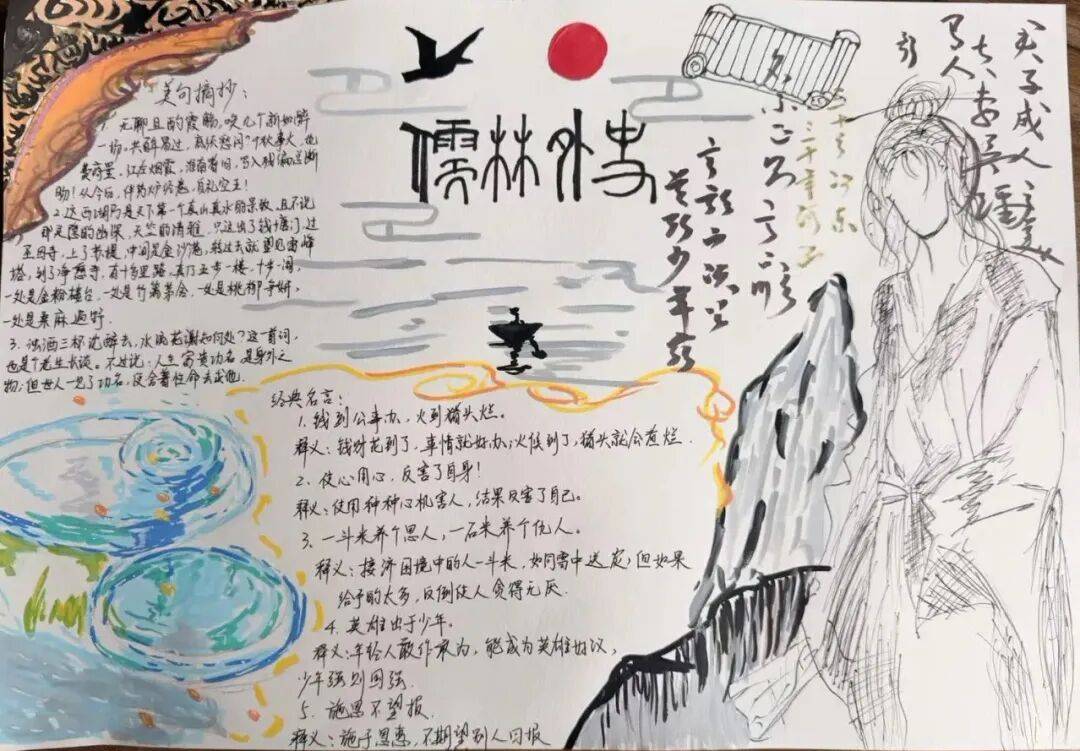 儒林外史
美句摘抄：
1. 无聊且酌霞觞，唤几个新知醉
一场，共百年易过，底须愁闷？千秋事大，也
费商量，江左烟霞，淮南耆旧，写入残编总断
肠！从今后，伴药炉经卷，自礼空王！
2. 这西湖乃是天下第一个真山真水的景致，且不说
那灵隐的幽深，天竺的清雅，只这出了钱塘门，过
圣因寺，上了苏堤，中间是金沙港，转过去就望见雷峰
塔，到了净慈寺，有十多里路，真乃五步一楼，十步一阁，
一处是金粉楼台，一处是竹篱茅舍，一处是桃柳争妍，
一处是桑麻遍野.
3. 浊酒三杯沈醉去，水流花谢知何处？这一首词，
也是个老生长谈。不过说：人生富贵功名是身外之
物；但世人一见了功名，便舍着性命去求他.
经典名言：
1. 钱到公事办，火到猪头烂。
释义：钱财花到了，事情就好办；火候到了，猪头就会煮烂.
2. 使心用心，反害了自身！
释义：使用种种心机害人，结果反害了自己。
3. 一斗米养个恩人，一石米养个仇人。
释义：接济困境中的人一斗米，如同雪中送炭；但如果
给予的太多，反倒使人贪得无厌.
4. 英雄出于少年。
释义：年轻人敢作敢为，能成为英雄如汉，
少年强则国强.
5. 施恩不望报.
释义：施予恩惠，不期望别人回报
三十年河东
三十年河西
莫欺少年穷